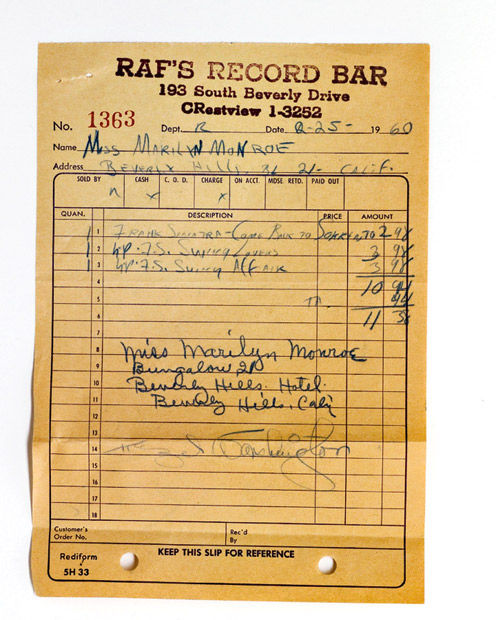 RAF'S RECORD BAR
193 South Beverly Drive
CRestview 1-3252
No. 1363 Dept. R Date 2-25- 1960
Name Miss Marilyn Monroe
Address Beverly Hills Calif.
SOLD BY CASH C. O. D. CHARGE ON ACCT. MDSE. RETD. PAID OUT
n x x
QUAN. DESCRIPTION PRICE AMOUNT
1 1 Frank Sinatra - Come Back to Sorrento 2 98
1 2 LP. F.S. Swing Lovers 3 98
1 3 LP. F.S. Swing Affair 3 98
4 10 94
5
6 11 38
7
8 Miss Marilyn Monroe
9 Bungalow
10 Beverly Hills. Hotel.
11 Beverly Hills, Calif
12
13
14
15
16
17
18
Customer's Order No. Rec'd By
Rediform
5H 33
KEEP THIS SLIP FOR REFERENCE